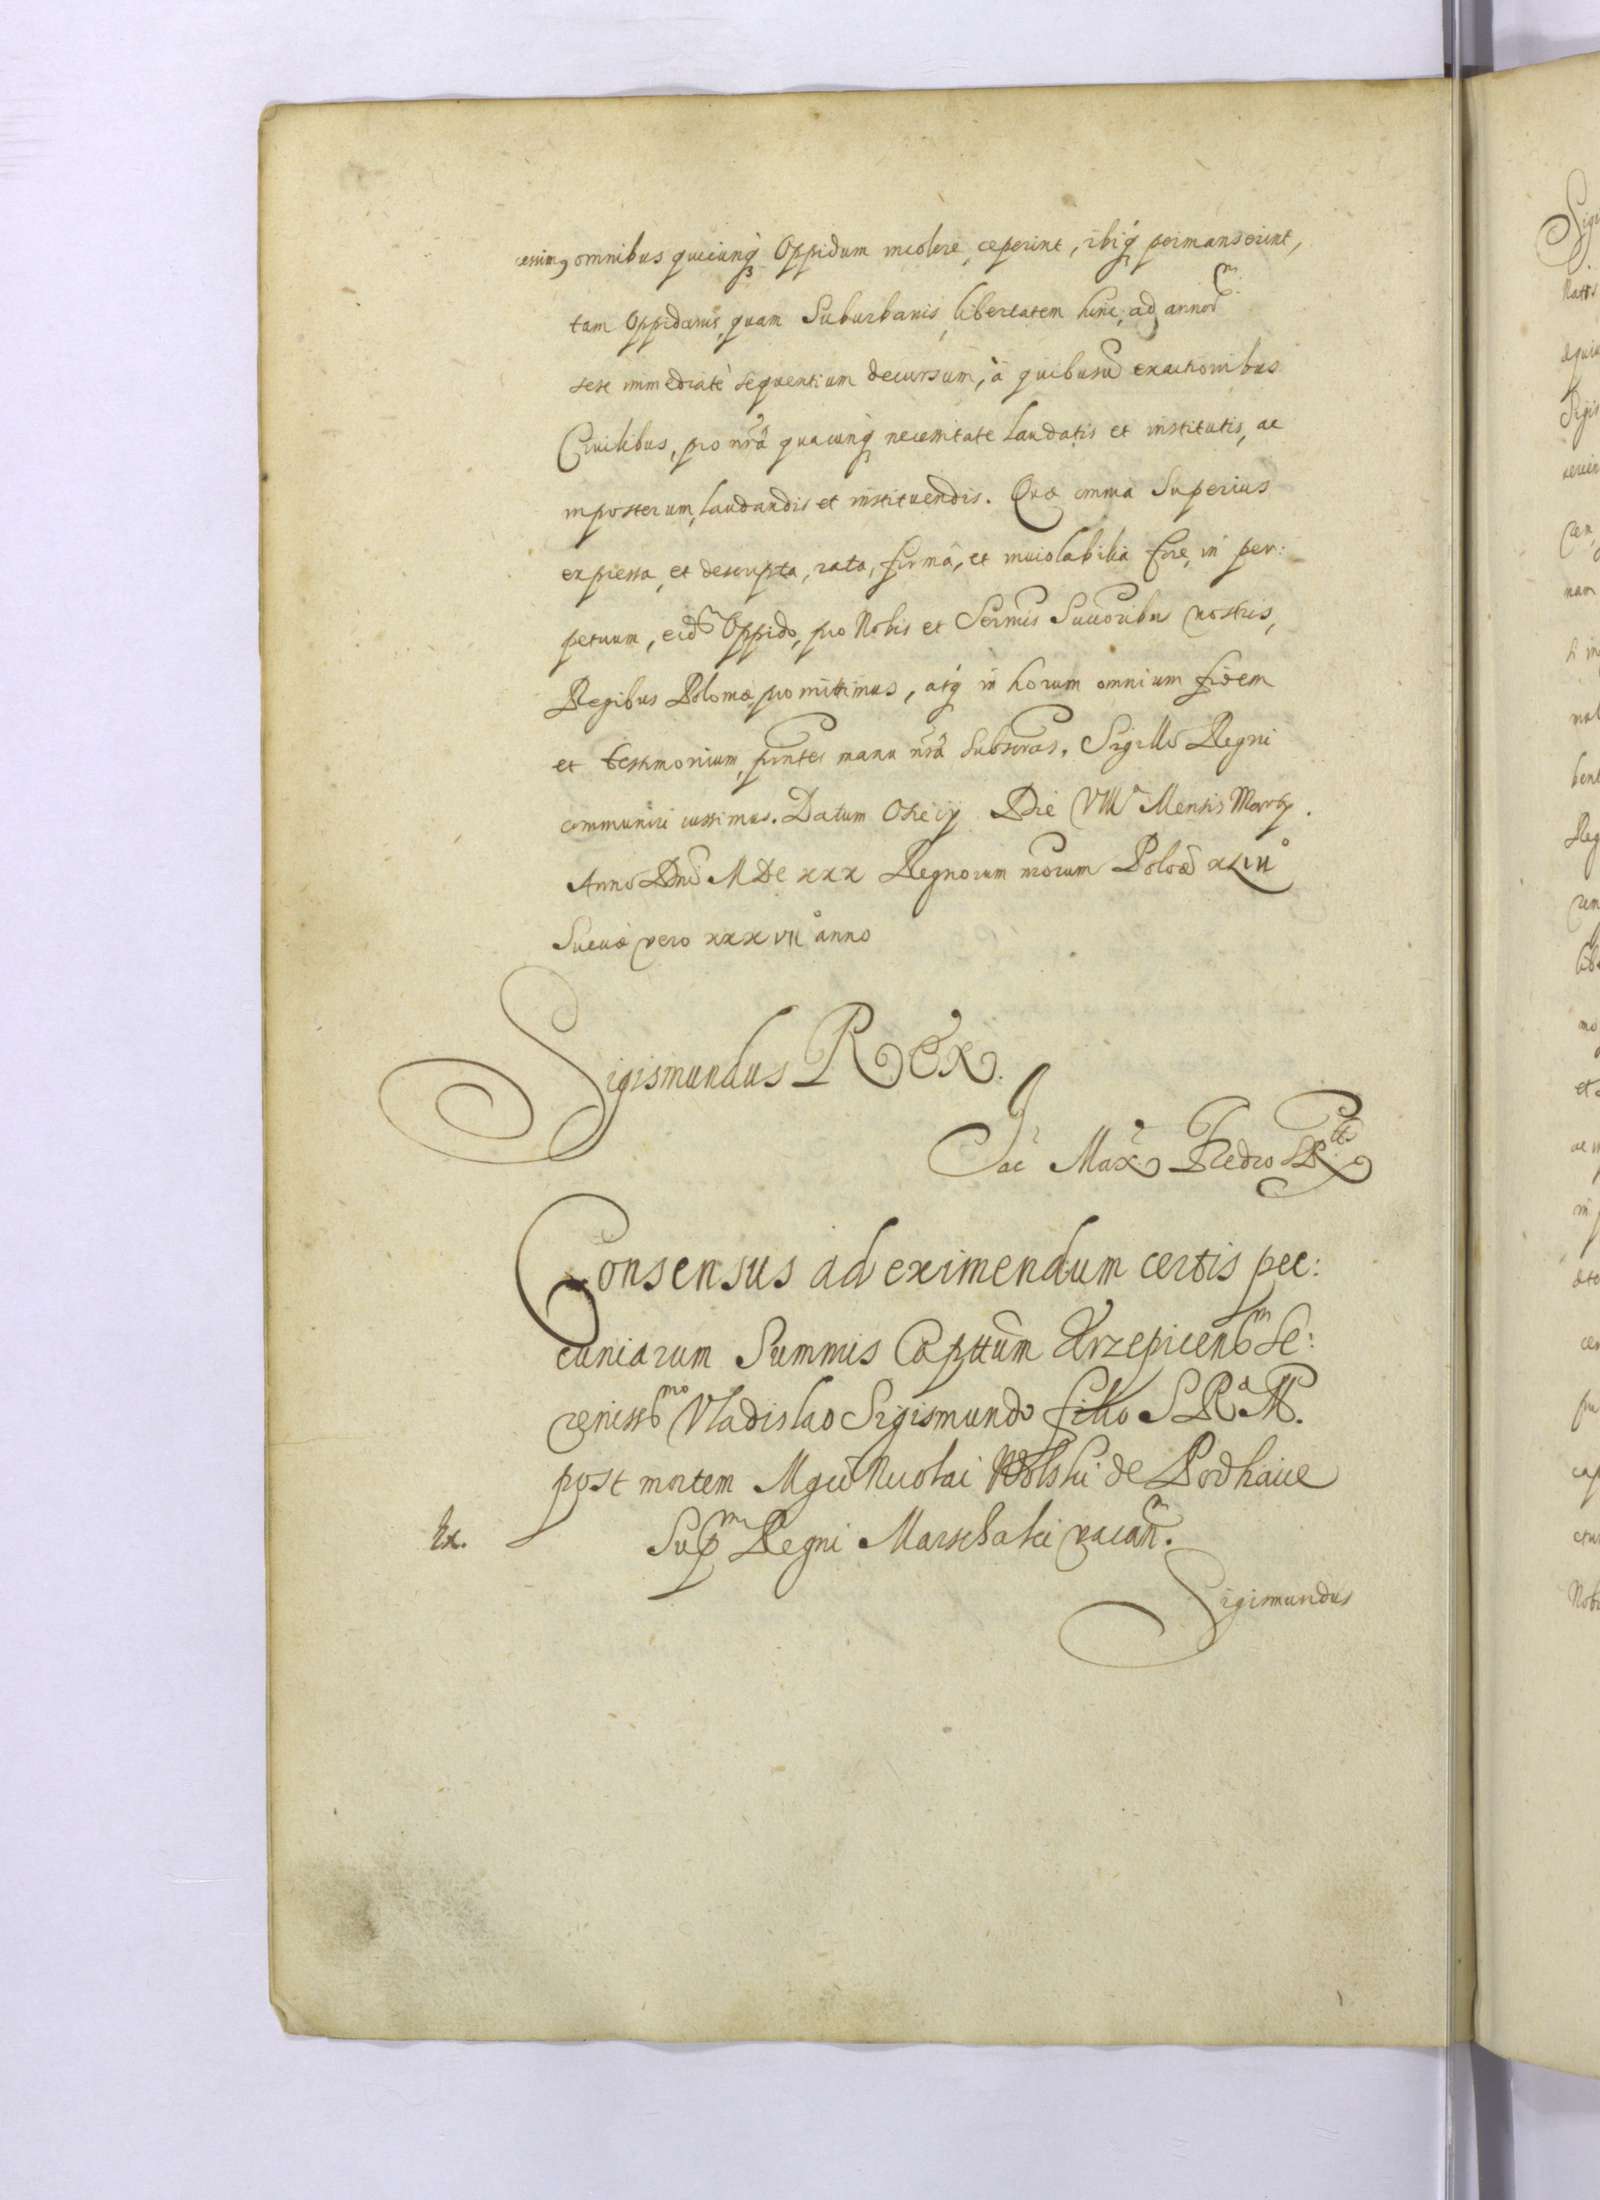 cessimq omnibus quicunq Oppidum incolere ceperint, ibiq permanserint,
tam Oppidanis, quam Suburbanis, libertatem hinc, ad annor
sese immediatè sequentium decursum, à quibusvis exactionibus
Civilibus, pro nrâ quacunq necessitate laudatis et institutis, ac
inposterum, laudandis et instituendis. Quæ omnia Superius
expressa, et descripta, rata, firma, et inviolabilia fore, in per:
petuum, eidm Oppido, pro Nobis et Sermis Succoribus nostris,
Regibus Poloniæ promittimus, atq in horum omnium fidem
et testimonium, pntes manu nrâ subscras. Sigillo Regni
communiri iussimus. Datum Die VIIIa Mensis Martij.
Anno Dni MDCXXX Regnorum nrorum Polo XLIIIo
Sueciæ vero XXXVIIo anno
Sigismundus REX.
Jac Max Fredro
Consensus ad eximendum certis pec:
cuniarum Summis Capttum Krzepicenm Se:
renissmo Vladislao Sigismundo filio SRaM.
post mortem Mgci Nicolai Wolski de Podhaice
Ex. Supmi Regni Marschalci vacan.
Sigismundus